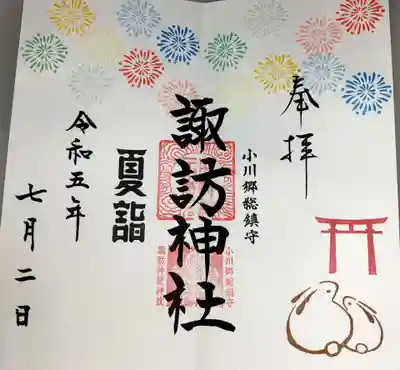 奉拝
小川郷総鎮守
諏訪神社
夏詣
令和五年
七月二日
小川郷総鎮守
諏訪神社神璽